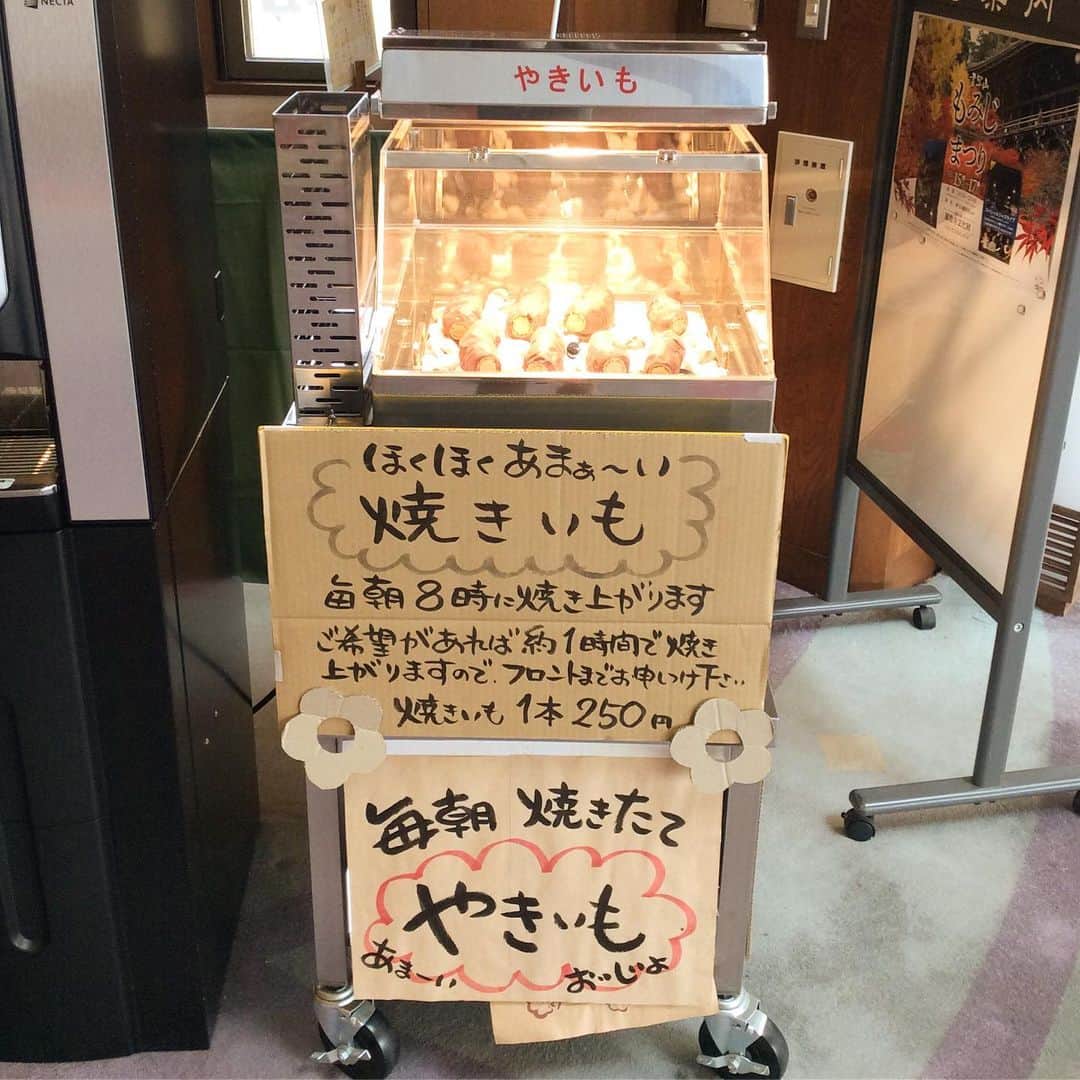 NECTA
やきいも
もみじ
まつり
ほくほくあまぁ〜い
焼きいも
毎朝8時に焼き上がります
ご希望があれば約1時間で焼き
上がりますので、フロントまでお申しつけ下さい
焼きいも 1本 250円
毎朝 焼きたて
やきいも
あまーい
おいじょ